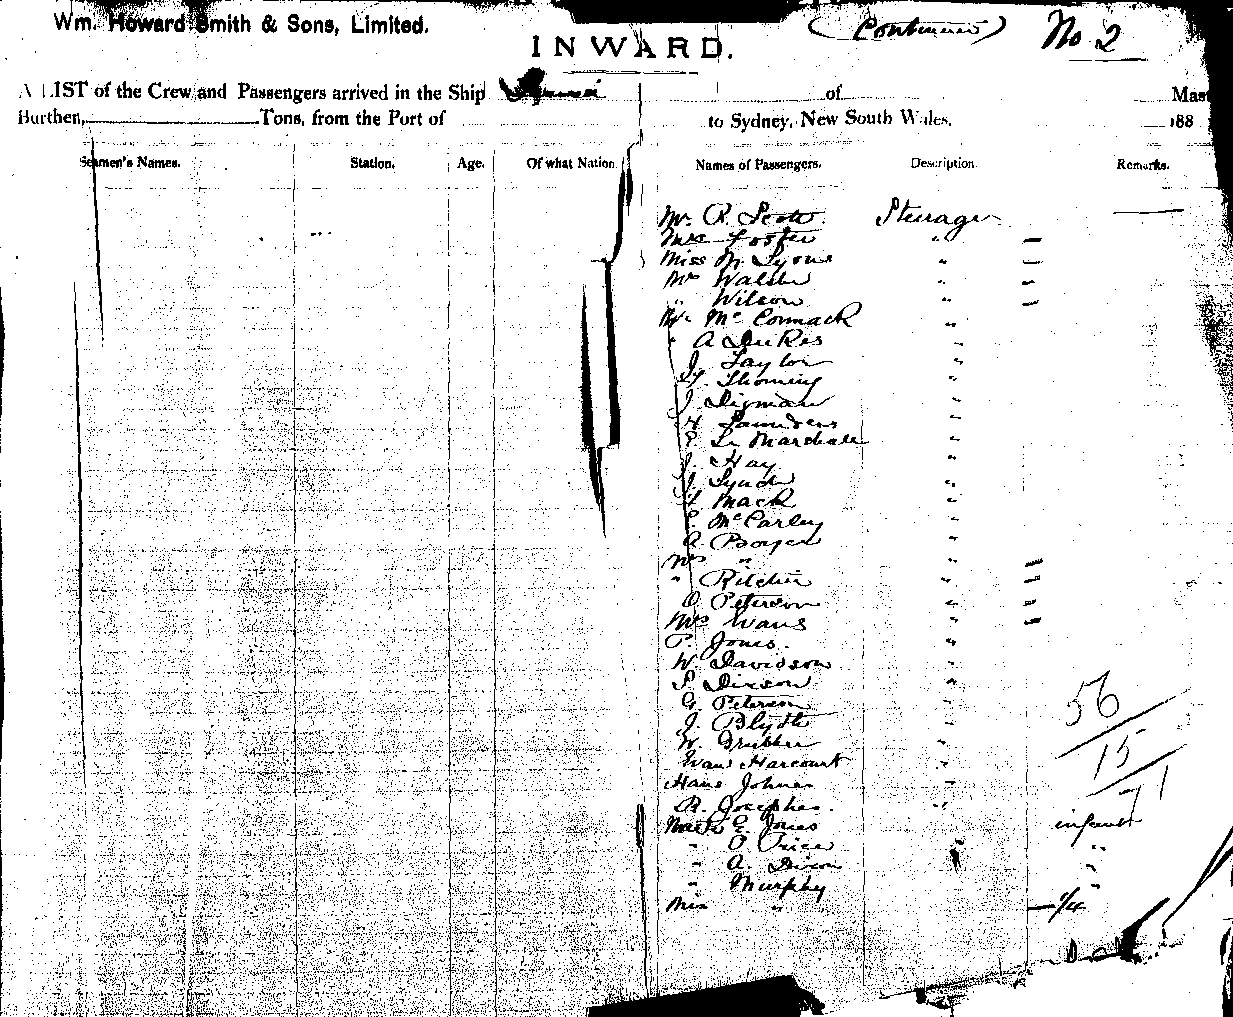 Wm. Howard Smith & Sons, Limited.
(Continued) No 2
INWARD.
A LIST of the Crew and Passengers arrived in the Ship of Mast
Burthen, Tons, from the Port of to Sydney, New South Wales, 188
Seamen's Names. Station. Age. Of what Nation. Names of Passengers. Description. Remarks.
Mr. R. Scott Steerage —
Mrs Foster " —
Miss M. Lyons " —
Mrs Walsh " —
" Wilson " —
Mr. McCormack "
" A Dukes "
J. Taylor "
"
J. Digman "
H Saunders "
E. Le Marshall "
J. Hay "
J. Lynch "
Mack "
McCarley "
A. "
Mrs " " —
" Ritchie " —
O. Peterson " —
Mrs Wans " —
P. Jones. "
W. Davidson "
S. Dixson "
G. Peterson "
J. Blyth "
W. "
Harcourt "
Hans "
R. Josephes. "
E. Jones infant
" P Price " "
" A. Dixon "
" Murphy "
Miss " —
56
15
71